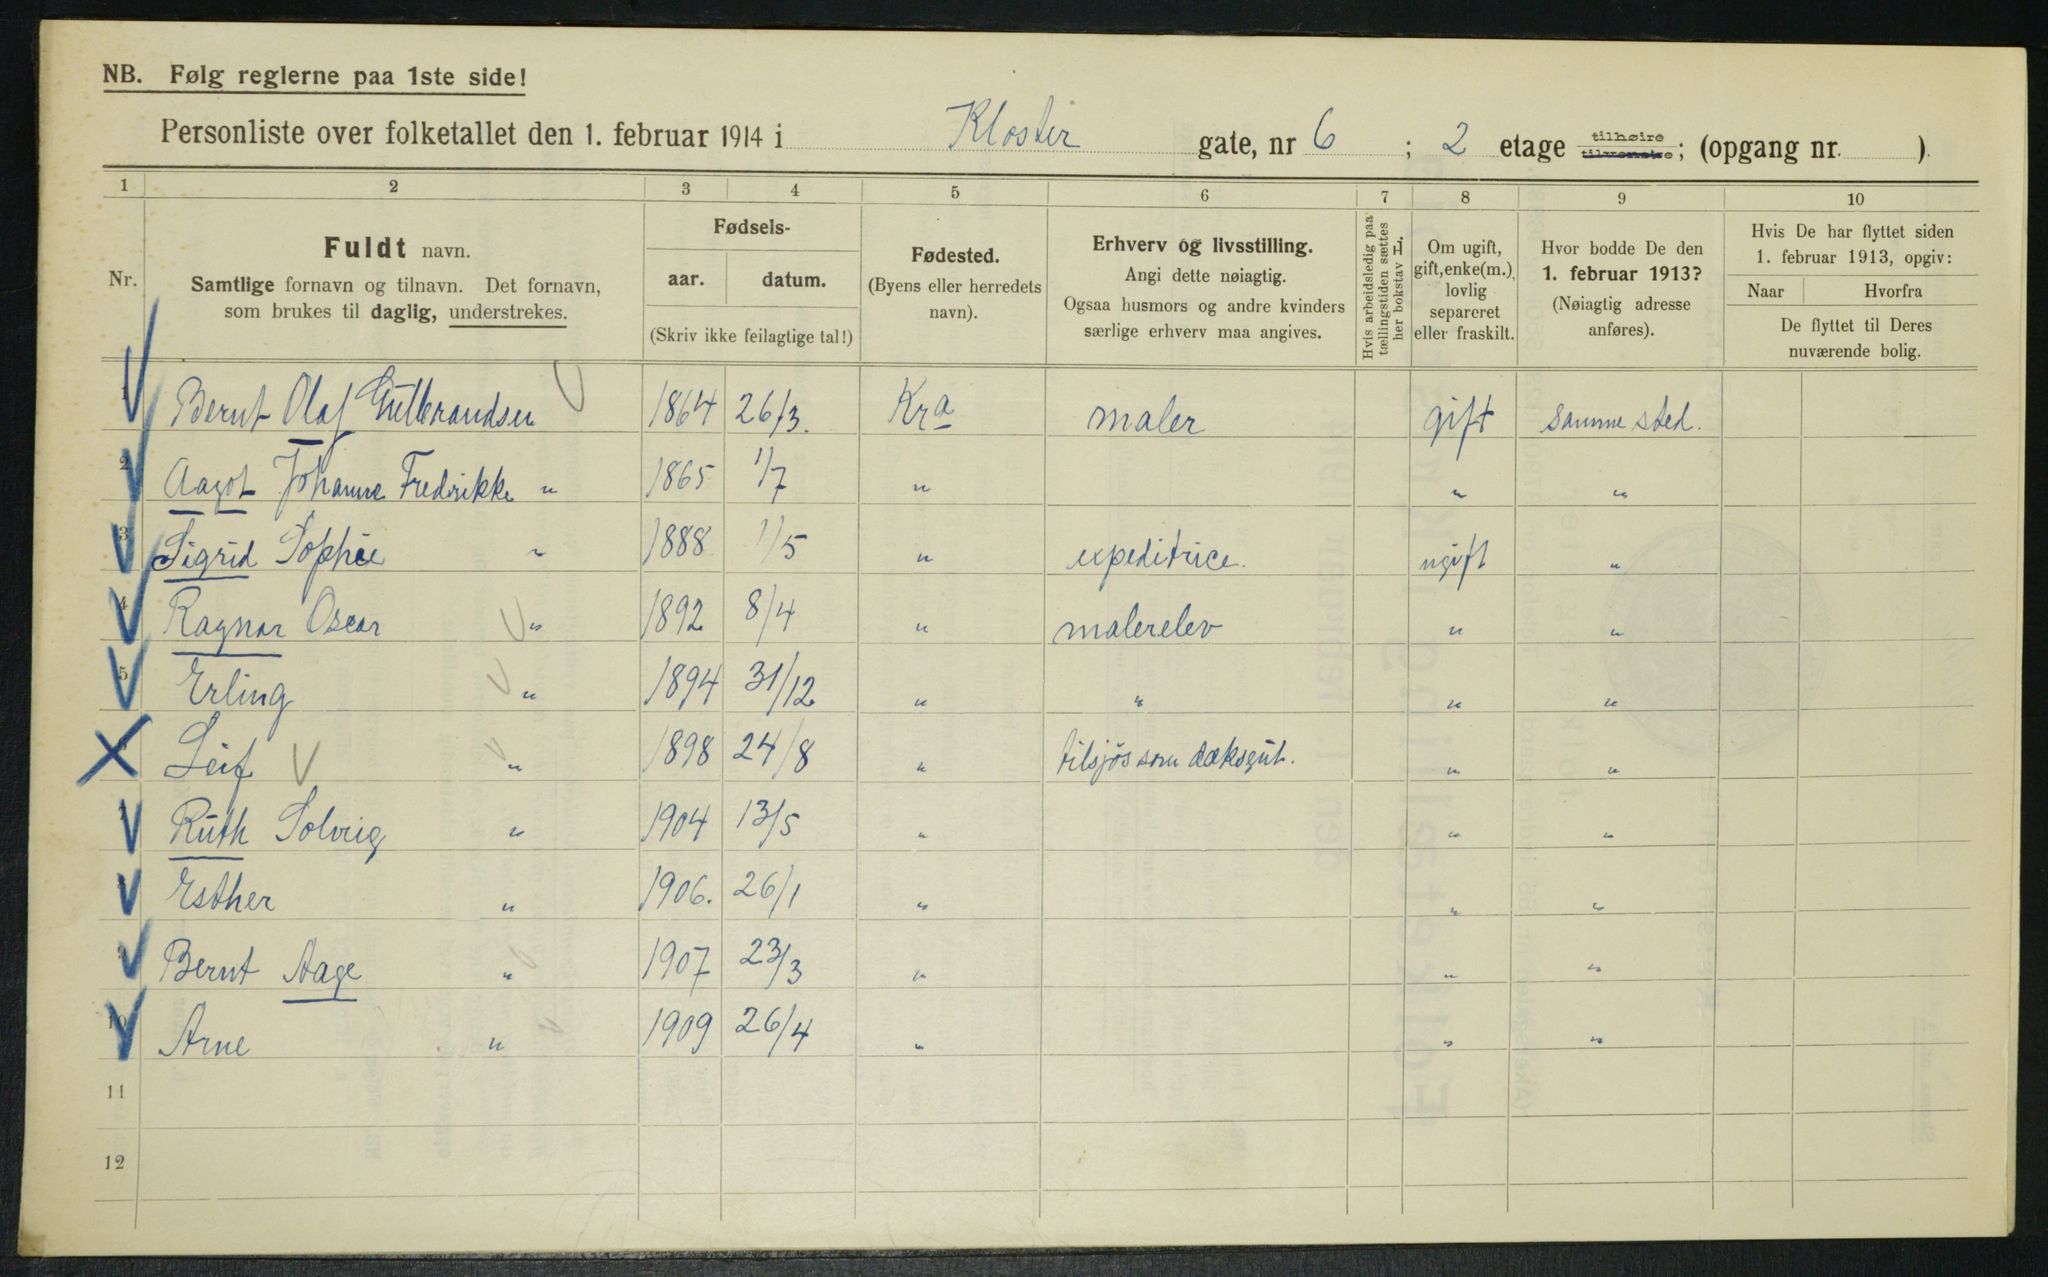 NB. Følg reglerne paa 1ste side!
Personliste over folketallet den 1. februar 1914 i Kloster gate, nr 6 ; 2 etage tilhøire tilvenstre; (opgang nr. )
1 2 3 4 5 6 7 8 9 10
Nr.
Fuldt navn.
Samtlige fornavn og tilnavn. Det fornavn,
som brukes til daglig, understrekes.
Fødsels-
aar. datum.
(Skriv ikke feilagtige tal!)
Fødested.
(Byens eller herredets
navn).
Erhverv og livsstilling.
Angi dette nøiagtig.
Ogsaa husmors og andre kvinders
særlige erhverv maa angives.
Hvis arbeidsledig paa
tællingstiden sættes
her bokstav L.
Om ugift,
gift, enke(m.),
lovlig
separeret
eller fraskilt.
Hvor bodde De den
1. februar 1913?
(Nøiagtig adresse
anføres).
Hvis De har flyttet siden
1. februar 1913, opgiv:
Naar Hvorfra
De flyttet til Deres
nuværende bolig.
1 Bernt Olaf Gulbrandsen 1864 26/3. Kra maler gift samme sted.
2 Aagot Johanne Fredrikke " 1865 1/7 " " "
3 Sigrid Sophie " 1888 1/5 " expeditrice. ugift "
4 Ragnar Oscar " 1892 8/4 " malerelev " "
5 Erling " 1894 31/12 " " " "
6 Leif " 1898 24/8 " tilsjøs som dæksgut. " "
7 Ruth Solveig " 1904 13/5 " " "
8 Esther " 1906. 26/1 " " "
9 Bernt Aage " 1907 23/3 " " "
10 Arne " 1909 26/4 " " "
11
12